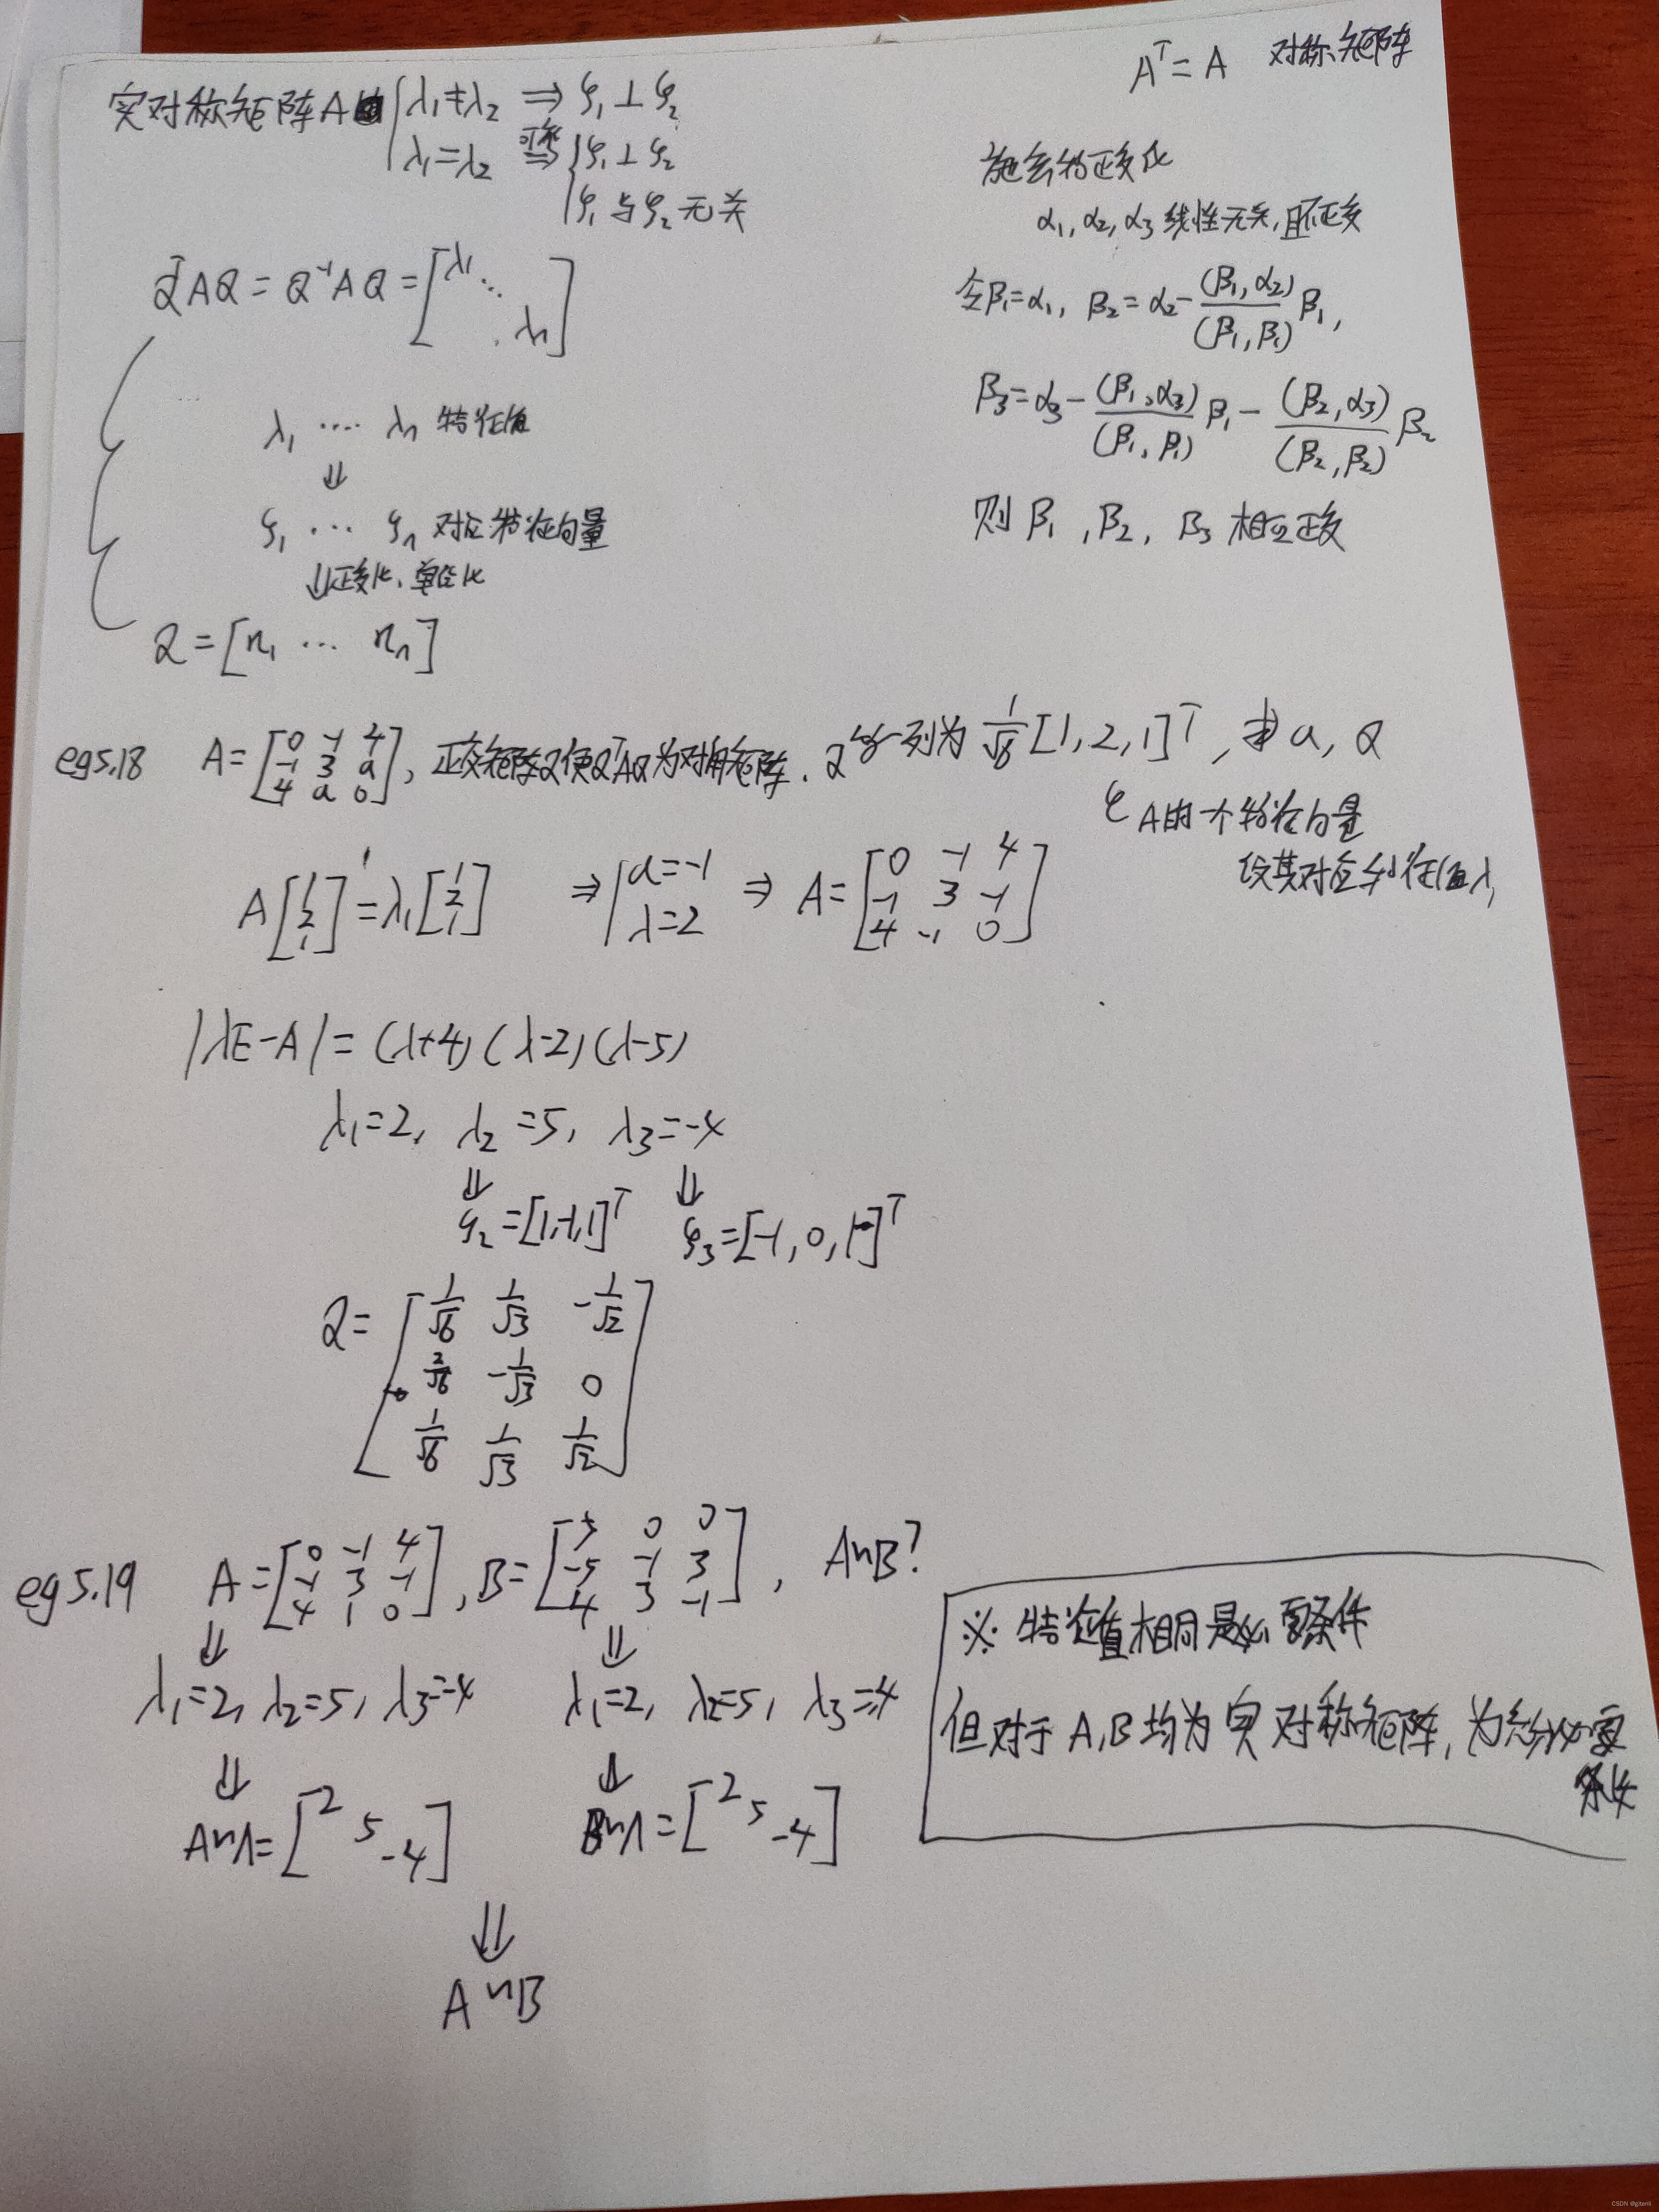 A^T = A 对称矩阵
实对称矩阵A { λ₁≠λ₂ ⇒ ξ₁⊥ξ₂
λ₁=λ₂ ⇒ { ξ₁⊥ξ₂
ξ₁与ξ₂无关
Q^T A Q = Q⁻¹ A Q = [λ₁ ⋱ λn]
λ₁ ···· λn 特征值
⇓
ξ₁ ··· ξn 对应特征向量
⇓正交化、单位化
Q = [η₁ ··· ηn]
施密特正交化
α₁, α₂, α₃ 线性无关, 且不正交
令β₁=α₁, β₂=α₂-(β₁,α₂)/(β₁,β₁) β₁,
β₃=α₃-(β₁,α₃)/(β₁,β₁) β₁-(β₂,α₃)/(β₂,β₂) β₂
则 β₁, β₂, β₃ 相互正交
eg5.18 A=[0 -1 4; -1 3 a; 4 a 0], 正交矩阵Q使Q^TAQ为对角矩阵. Q的一列为 1/√6 [1,2,1]^T, 求 a, Q
A的一个特征向量
设其对应特征值λ₁
A[1; 2; 1] = λ₁[1; 2; 1] ⇒ { a=-1
λ=2 ⇒ A=[0 -1 4; -1 3 -1; 4 -1 0]
|λE-A| = (λ+4)(λ-2)(λ-5)
λ₁=2, λ₂=5, λ₃=-4
⇓ ⇓
ξ₂=[1,-1,1]^T ξ₃=[-1,0,1]^T
Q= [1/√6 1/√3 -1/√2; 2/√6 -1/√3 0; 1/√6 1/√3 1/√2]
eg5.19 A=[0 -1 4; -1 3 -1; 4 1 0], B=[5 0 0; -5 -1 3; 4 3 -1], A~B?
⇓ ⇓
λ₁=2, λ₂=5, λ₃=-4 λ₁=2, λ₂=5, λ₃=-4
⇓ ⇓
A~Λ=[2 5 -4] B~Λ=[2 5 -4]
⇓
A~B
※ 特征值相同是必要条件
但对于A,B均为实对称矩阵, 为充分必要
条件
CSDN @giteni